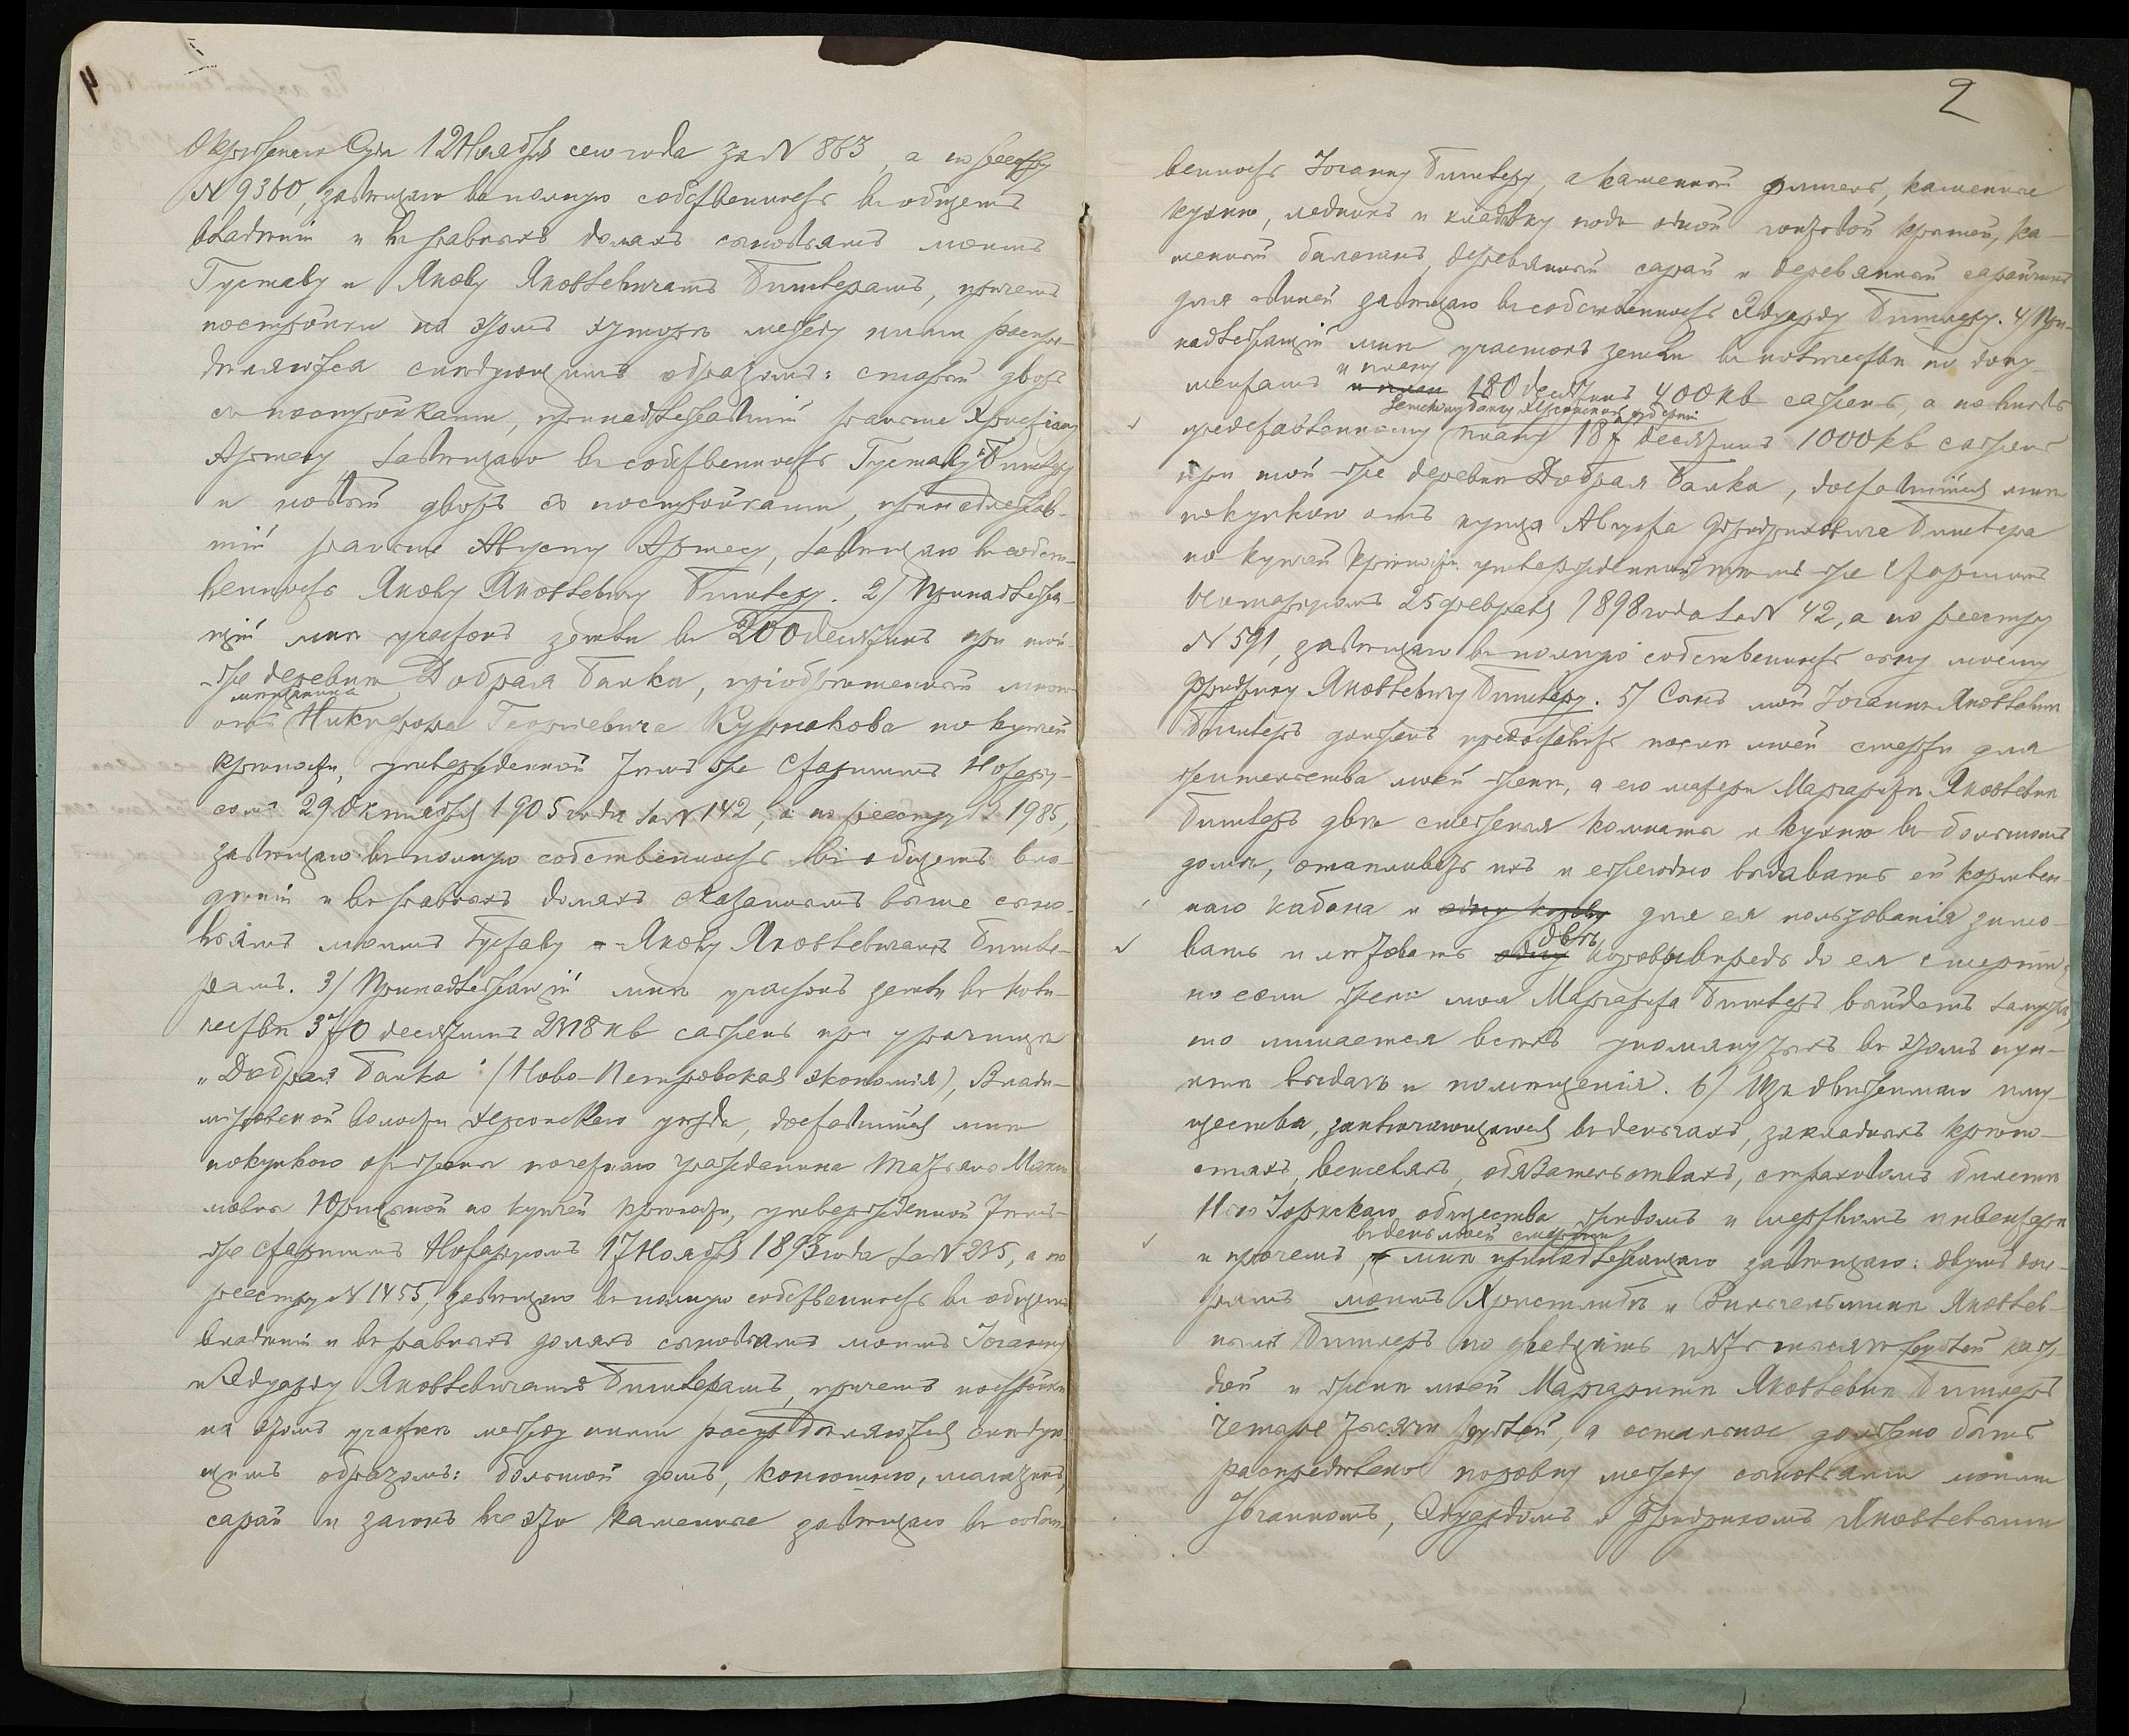 4
Окружнаго Суда 12 Ноября сего года за № 863, а по реестру
№ 9360, завѣщаю въ полную собственность въ общемъ
владѣніи и въ равныхъ доляхъ сыновьямъ моимъ
Густаву и Якову Яковлевичамъ Битлерамъ, причемъ
постройки на этомъ хуторѣ между ними распре-
дѣляются слѣдующимъ образомъ: старый дворъ
съ постройками, принадлежавшій раньше Христіану
завѣщаю въ собственность Густаву Битлеру
и новый дворъ съ постройками, принадлежав-
шій раньше Августу завѣщаю въ собст-
венность Якову Яковлевичу Битлеру. 2/ Принадлежа-
щій мнѣ участокъ земли въ 200 десятинъ при той-
же деревнѣ Добрая Балка, пріобрѣтенный мною
мѣщанина
отъ Никифора Георгіевича Курпакова по купчей
крѣпости, утвержденной тѣмъ же Старшимъ Нотарі-
усомъ 29 Октября 1905 года за № 142, а по реестру № 1985,
завѣщаю въ полную собственность въ общемъ вла-
дѣніи и въ равныхъ доляхъ сказаннымъ выше сыно-
вьямъ моимъ Густаву и Якову Яковлевичамъ Битле-
рамъ. 3/ Принадлежащій мнѣ участокъ земли въ коли-
чествѣ 370 десятинъ 2318 кв сажень при урочищѣ
„Добрая Балка" (Ново-Петровская экономія), Влади-
міровской волости Херсонскаго уѣзда, доставшійся мнѣ
покупкою отъ жены почетнаго гражданина Татьяны Макси-
мовны Юрицыной по купчей крѣпости, утвержденной тѣмъ-
же Старшимъ Нотаріусомъ 17 Ноября 1893 года за № 235, а по
реестру № 1455, завѣщаю въ полную собственность въ общемъ
владѣніи и въ равныхъ доляхъ сыновьямъ моимъ Іоганну
и Эдуарду Яковлевичамъ Битлерамъ, причемъ постройки
на этомъ участкѣ между ними распредѣляются слѣдую-
щимъ образомъ: большой домъ, конюшню, магазинъ,
сарай и загонъ все это каменное завѣщаю въ собст-
2
венность Іоганну Битлеру, а каменный флигель, каменные
кухню, ледникъ и кладовку подъ одной крышей, ка-
менный балаганъ, деревянный сарай и деревянный сарайчикъ
для завѣщаю въ собственность Эдуарду Битлеру. 4/ При-
надлежащій мнѣ участокъ земли въ количествѣ по доку-
и плану
ментамъ и план 180 десятинъ 400 кв сажень, а по вновь
Земскому банку Херсонской губерніи
представленному плану 187 десятинъ 1000 кв сажень
при той же деревнѣ Добрая Балка, доставшійся мнѣ
покупкою отъ купца Августа Фридриховича Битлера
по купчей крѣпости, утвержденной тѣмъ же Старшимъ
Нотаріусомъ 25 февраля 1898 года за № 42, а по реестру
№ 591, завѣщаю въ полную собственность сыну моему
Фридриху Яковлевичу Битлеру. 5/ Сынъ мой Іоганнъ Яковлевичъ
Битлеръ долженъ предоставить послѣ моей смерти для
жительства моей женѣ, а его матери Маргаритѣ Яковлевнѣ
Битлеръ двѣ смежныя комнаты и кухню въ большомъ
домѣ, отапливать ихъ и ежегодно выдавать ей кормлен-
наго кабана и одну корову для ея пользованія зимо-
двѣ
вать и лѣтовать одну коровы впредь до ея смерти;
но если жена моя Маргарита Битлеръ выйдетъ замужъ,
то лишается всѣхъ упомянутыхъ въ этомъ пун-
ктѣ выдачъ и помѣщенія. 6/ Изъ движимаго иму-
щества, заключающагося въ деньгахъ, закладныхъ крѣпо-
стяхъ, векселяхъ, обязательствахъ, страховомъ билетѣ
Нью Іоркскаго общества, живомъ и мертвомъ инвентарѣ
въ день моей смерти
и прочемъ, мнѣ принадлежащаго завѣщаю: двумъ доче-
рямъ моимъ Христинѣ и Вильгельминѣ Яковлев-
намъ Битлеръ по двадцать пять тысячъ рублей каж-
дой и женѣ моей Маргаритѣ Яковлевнѣ Битлеръ
четыре тысячи рублей, а остальное должно быть
распредѣлено поровну между сыновьями моими
Іоганномъ, Эдуардомъ и Фридрихомъ Яковлевыми